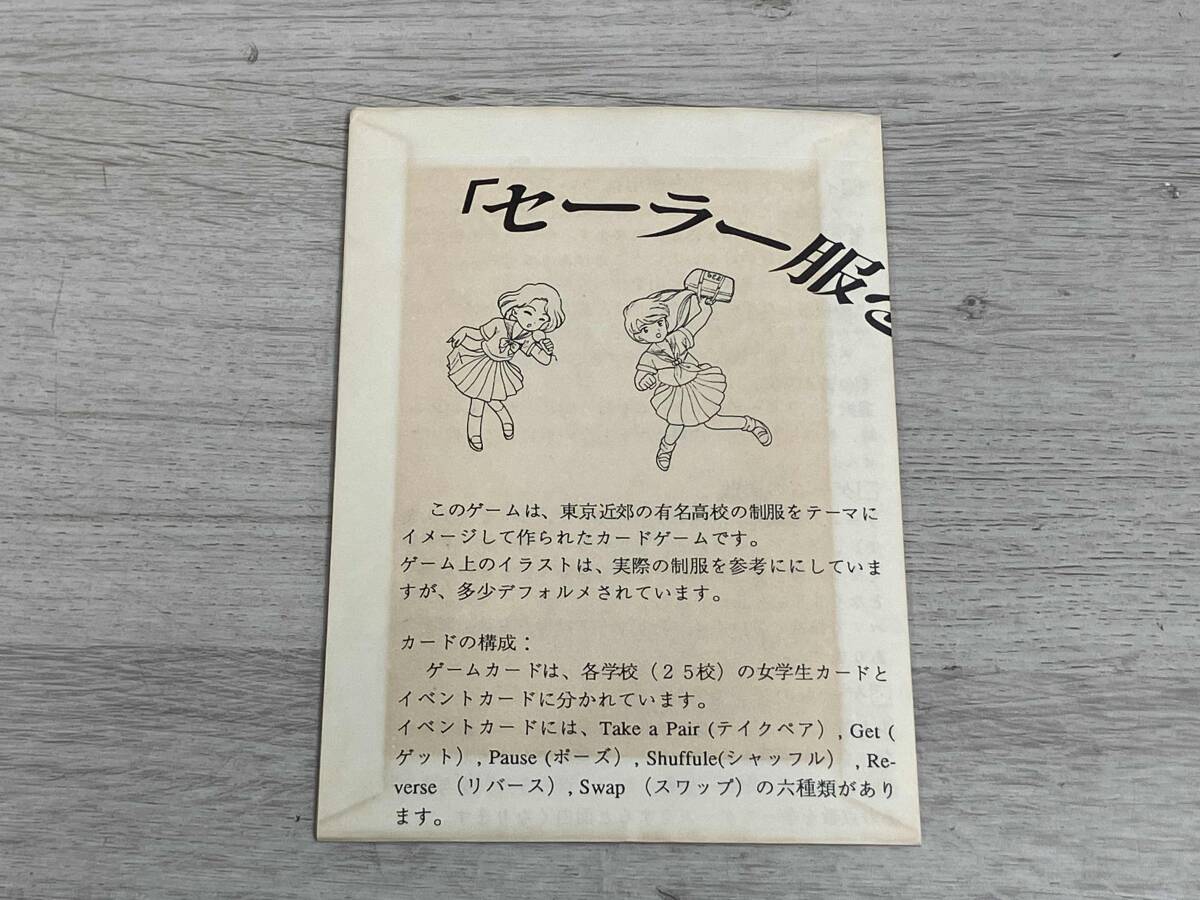 「セーラー服を
このゲームは、東京近郊の有名高校の制服をテーマに
イメージして作られたカードゲームです。
ゲーム上のイラストは、実際の制服を参考ににしていま
すが、多少デフォルメされています。
カードの構成：
ゲームカードは、各学校（２５校）の女学生カードと
イベントカードに分かれています。
イベントカードには、Take a Pair (テイクペア）, Get (
ゲット）, Pause (ポーズ）, Shuffule(シャッフル） , Re-
verse （リバース）, Swap （スワップ）の六種類があり
ます。